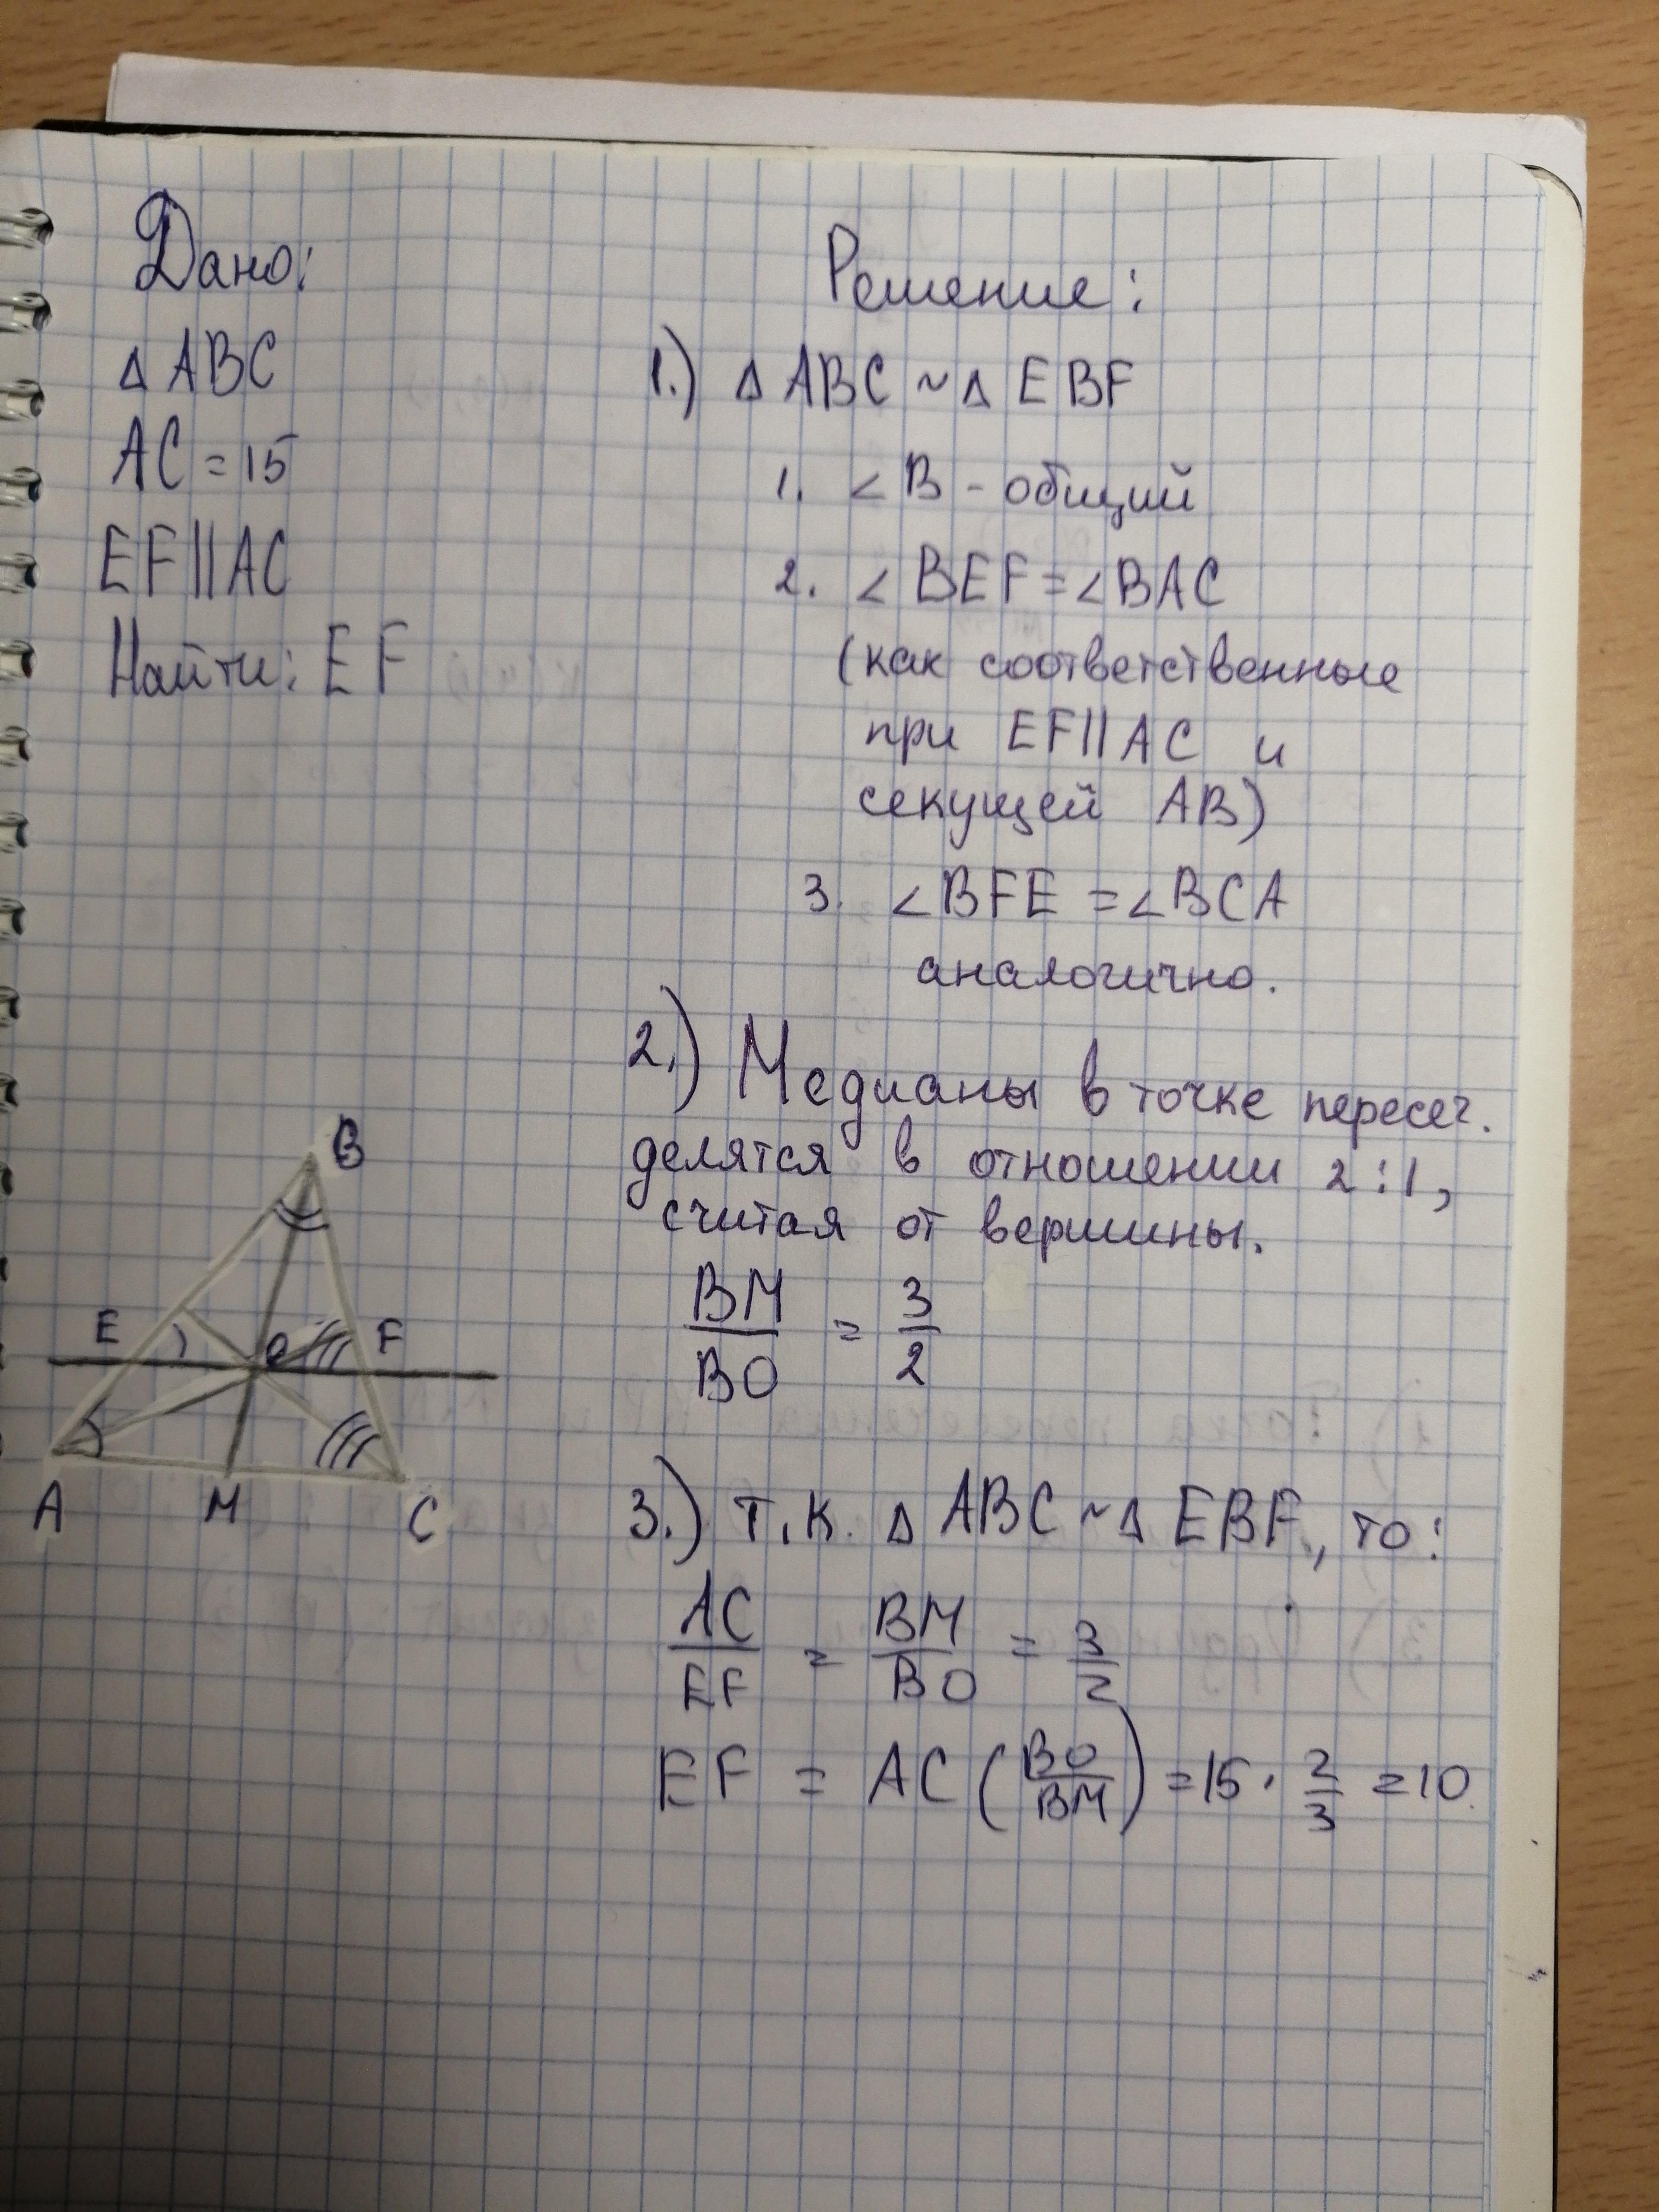 Дано:
△ ABC
AC = 15
EF || AC
Найти: EF
Решение:
1.) △ ABC ~ △ EBF
1. ∠ B - общий
2. ∠ BEF = ∠ BAC
(как соответственные
при EF || AC и
секущей AB)
3. ∠ BFE = ∠ BCA
аналогично.
2.) Медианы в точке пересеч.
делятся в отношении 2 : 1,
считая от вершины.
BM/BO = 3/2
3.) т.к. △ ABC ~ △ EBF, то:
AC/EF = BM/BO = 3/2
EF = AC (BO/BM) = 15 · 2/3 = 10.
B
E O F
A M C